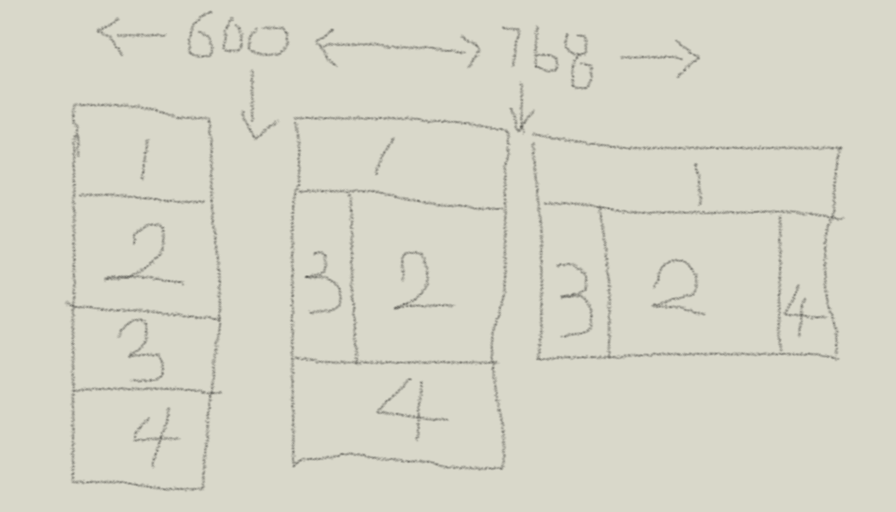 600 768
1
2
3
4
1
3 2
4
1
3 2 4